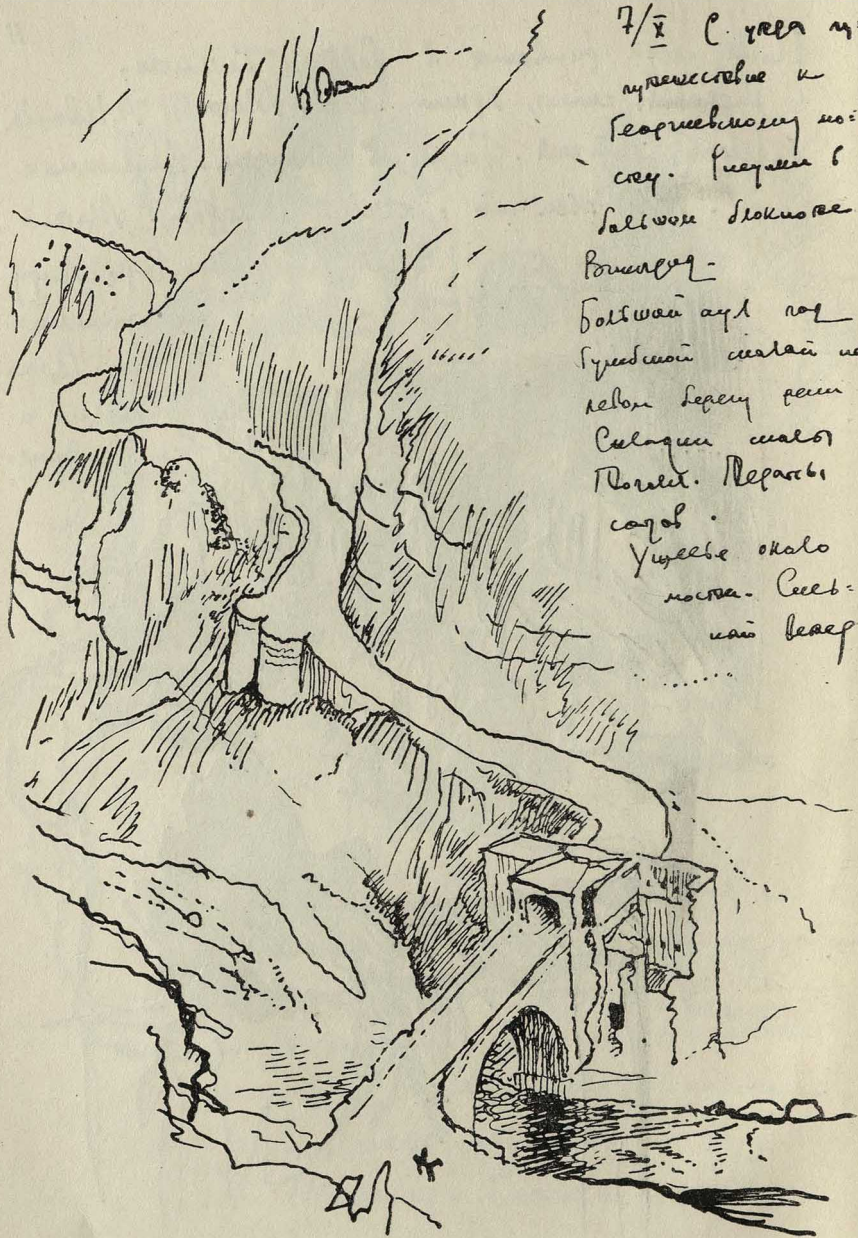 7/X С утра
путешествие к
Георгиевскому мо=
сту. Рисунки в
большом блокноте
Виноград.
Большой аул под
Гунибской скалой на
левом берегу реки
Складки скалы
Тополя.
садов.
Ущелье около
моста. Силь=
ный ветер